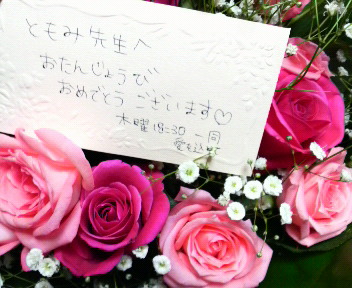 ともみ先生へ
おたんじょうび
おめでとう ございます♡
木曜18:30 一同
愛を込めて